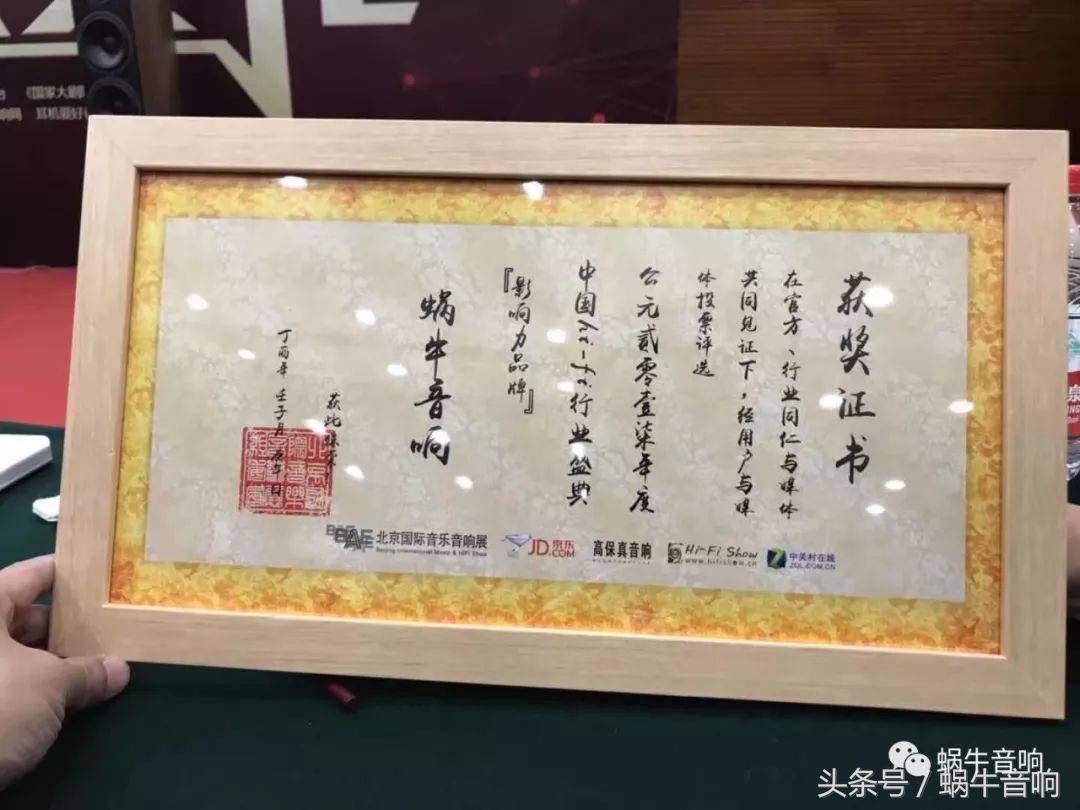 《国家大剧
耳机爱好
获奖证书
在官方、行业同仁与媒体
共同见证下，经用户与媒
体投票评选
公元贰零壹柒年度
中国Hi-Fi行业盛典
『影响力品牌』
蜗牛音响
获此殊荣
丁酉年 壬子月
北京国际音乐音响展
Beijing International Music & HiFi Show
JD.京东
.COM
高保真音响
Hi-Fi Show
www.hifishow.cn
中关村在线
ZOL.COM.CN
蜗牛音响
头条号 / 蜗牛音响